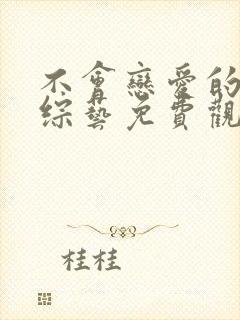 不會戀愛的
綜藝免費觀
桂桂